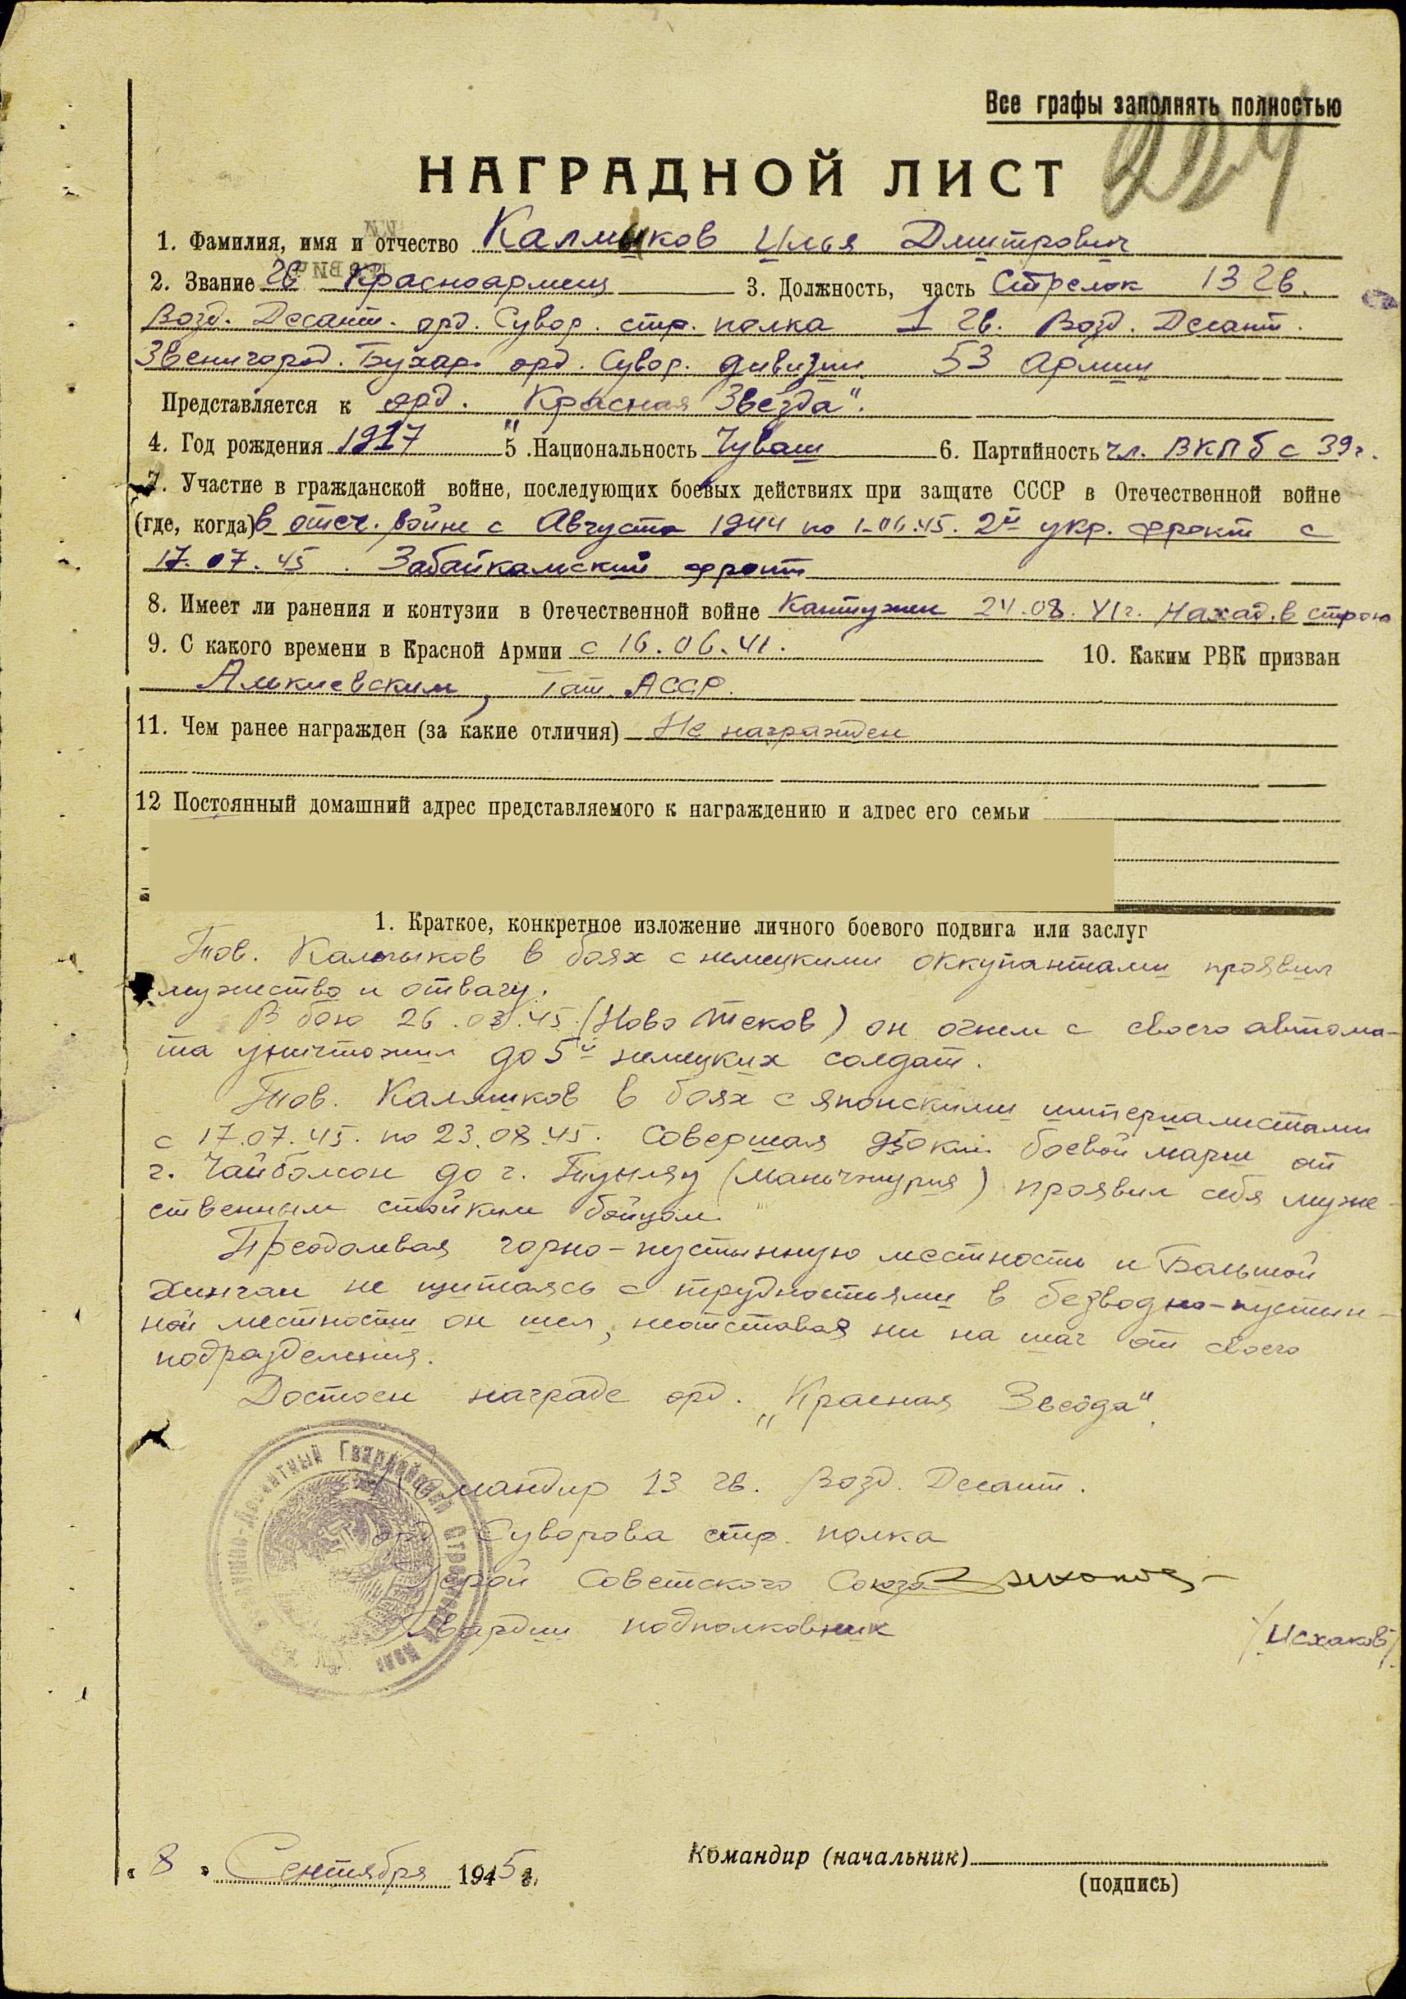 Все графы заполнять полностью
224
НАГРАДНОЙ ЛИСТ
1. Фамилия, имя и отчество Калмыков Илья Дмитрович
2. Звание гв Красноармеец 3. Должность, часть Стрелок 13 гв.
Возд. Десант. орд. Сувор. стр. полка 1 гв. Возд. Десант.
Звенигород. Бухар. орд. Сувор. дивизии 53 армии
Представляется к орд. "Красная Звезда".
4. Год рождения 1917 5. Национальность Чуваш 6. Партийность чл. ВКПб с 39г.
7. Участие в гражданской войне, последующих боевых действиях при защите СССР в Отечественной войне
(где, когда) в отеч. войне с Августа 1944 по 1-06.45. 2й укр. фронт с
17.07.45. Забайкалский фронт
8. Имеет ли ранения и контузии в Отечественной войне Контужен 24.08.41г. Наход. в строю
9. С какого времени в Красной Армии с 16.06.41. 10. Каким РВК призван
Алкиевским, Тат. АССР.
11. Чем ранее награжден (за какие отличия) Не награжден
12 Постоянный домашний адрес представляемого к награждению и адрес его семьи
1. Краткое, конкретное изложение личного боевого подвига или заслуг
Тов. Калмыков в боях с немецкими оккупантами проявил
мужество и отвагу.
В бою 26.03.45 (Ново Теков) он огнем с своего автома-
та уничтожил до 5й немецких солдат.
Тов. Калмыков в боях с японскими империалистами
с 17.07.45. по 23.08.45. Совершая боевой марш от
г. Чойболсон до г. Туняу (Манчжурия) проявил себя муже-
ственным стойким бойцом.
Преодолевая горно-пустынную местность и Большой
Хинган не щитаясь с трудностями в безводно-пустын-
ной местности он шел, неотставая ни на шаг от своего
подразделения.
Достоен награде орд. "Красная Звезда".
Командир 13 гв. Возд. Десант.
орд Суворова стр. полка
Герой Советского Союза
Гвардии подполковник
/Исхаков/
"8" Сентября 1945 г.
Командир (начальник)
(подпись)